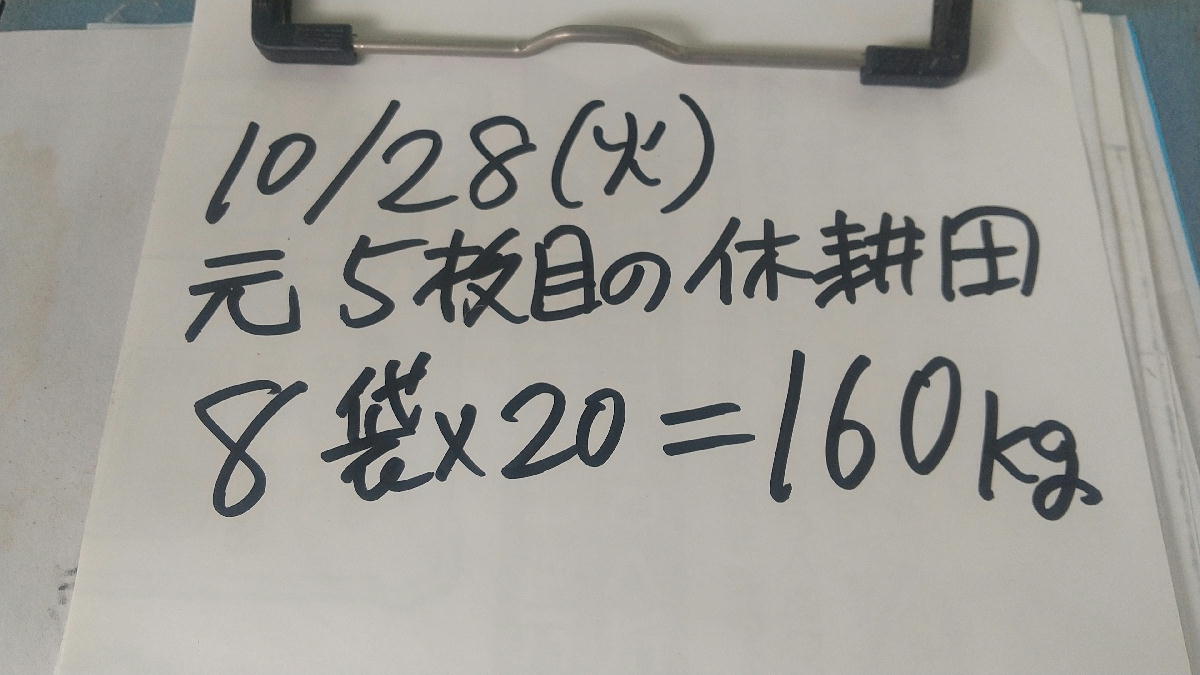 10/28(火)
元5枚目の休耕田
8袋×20=160kg